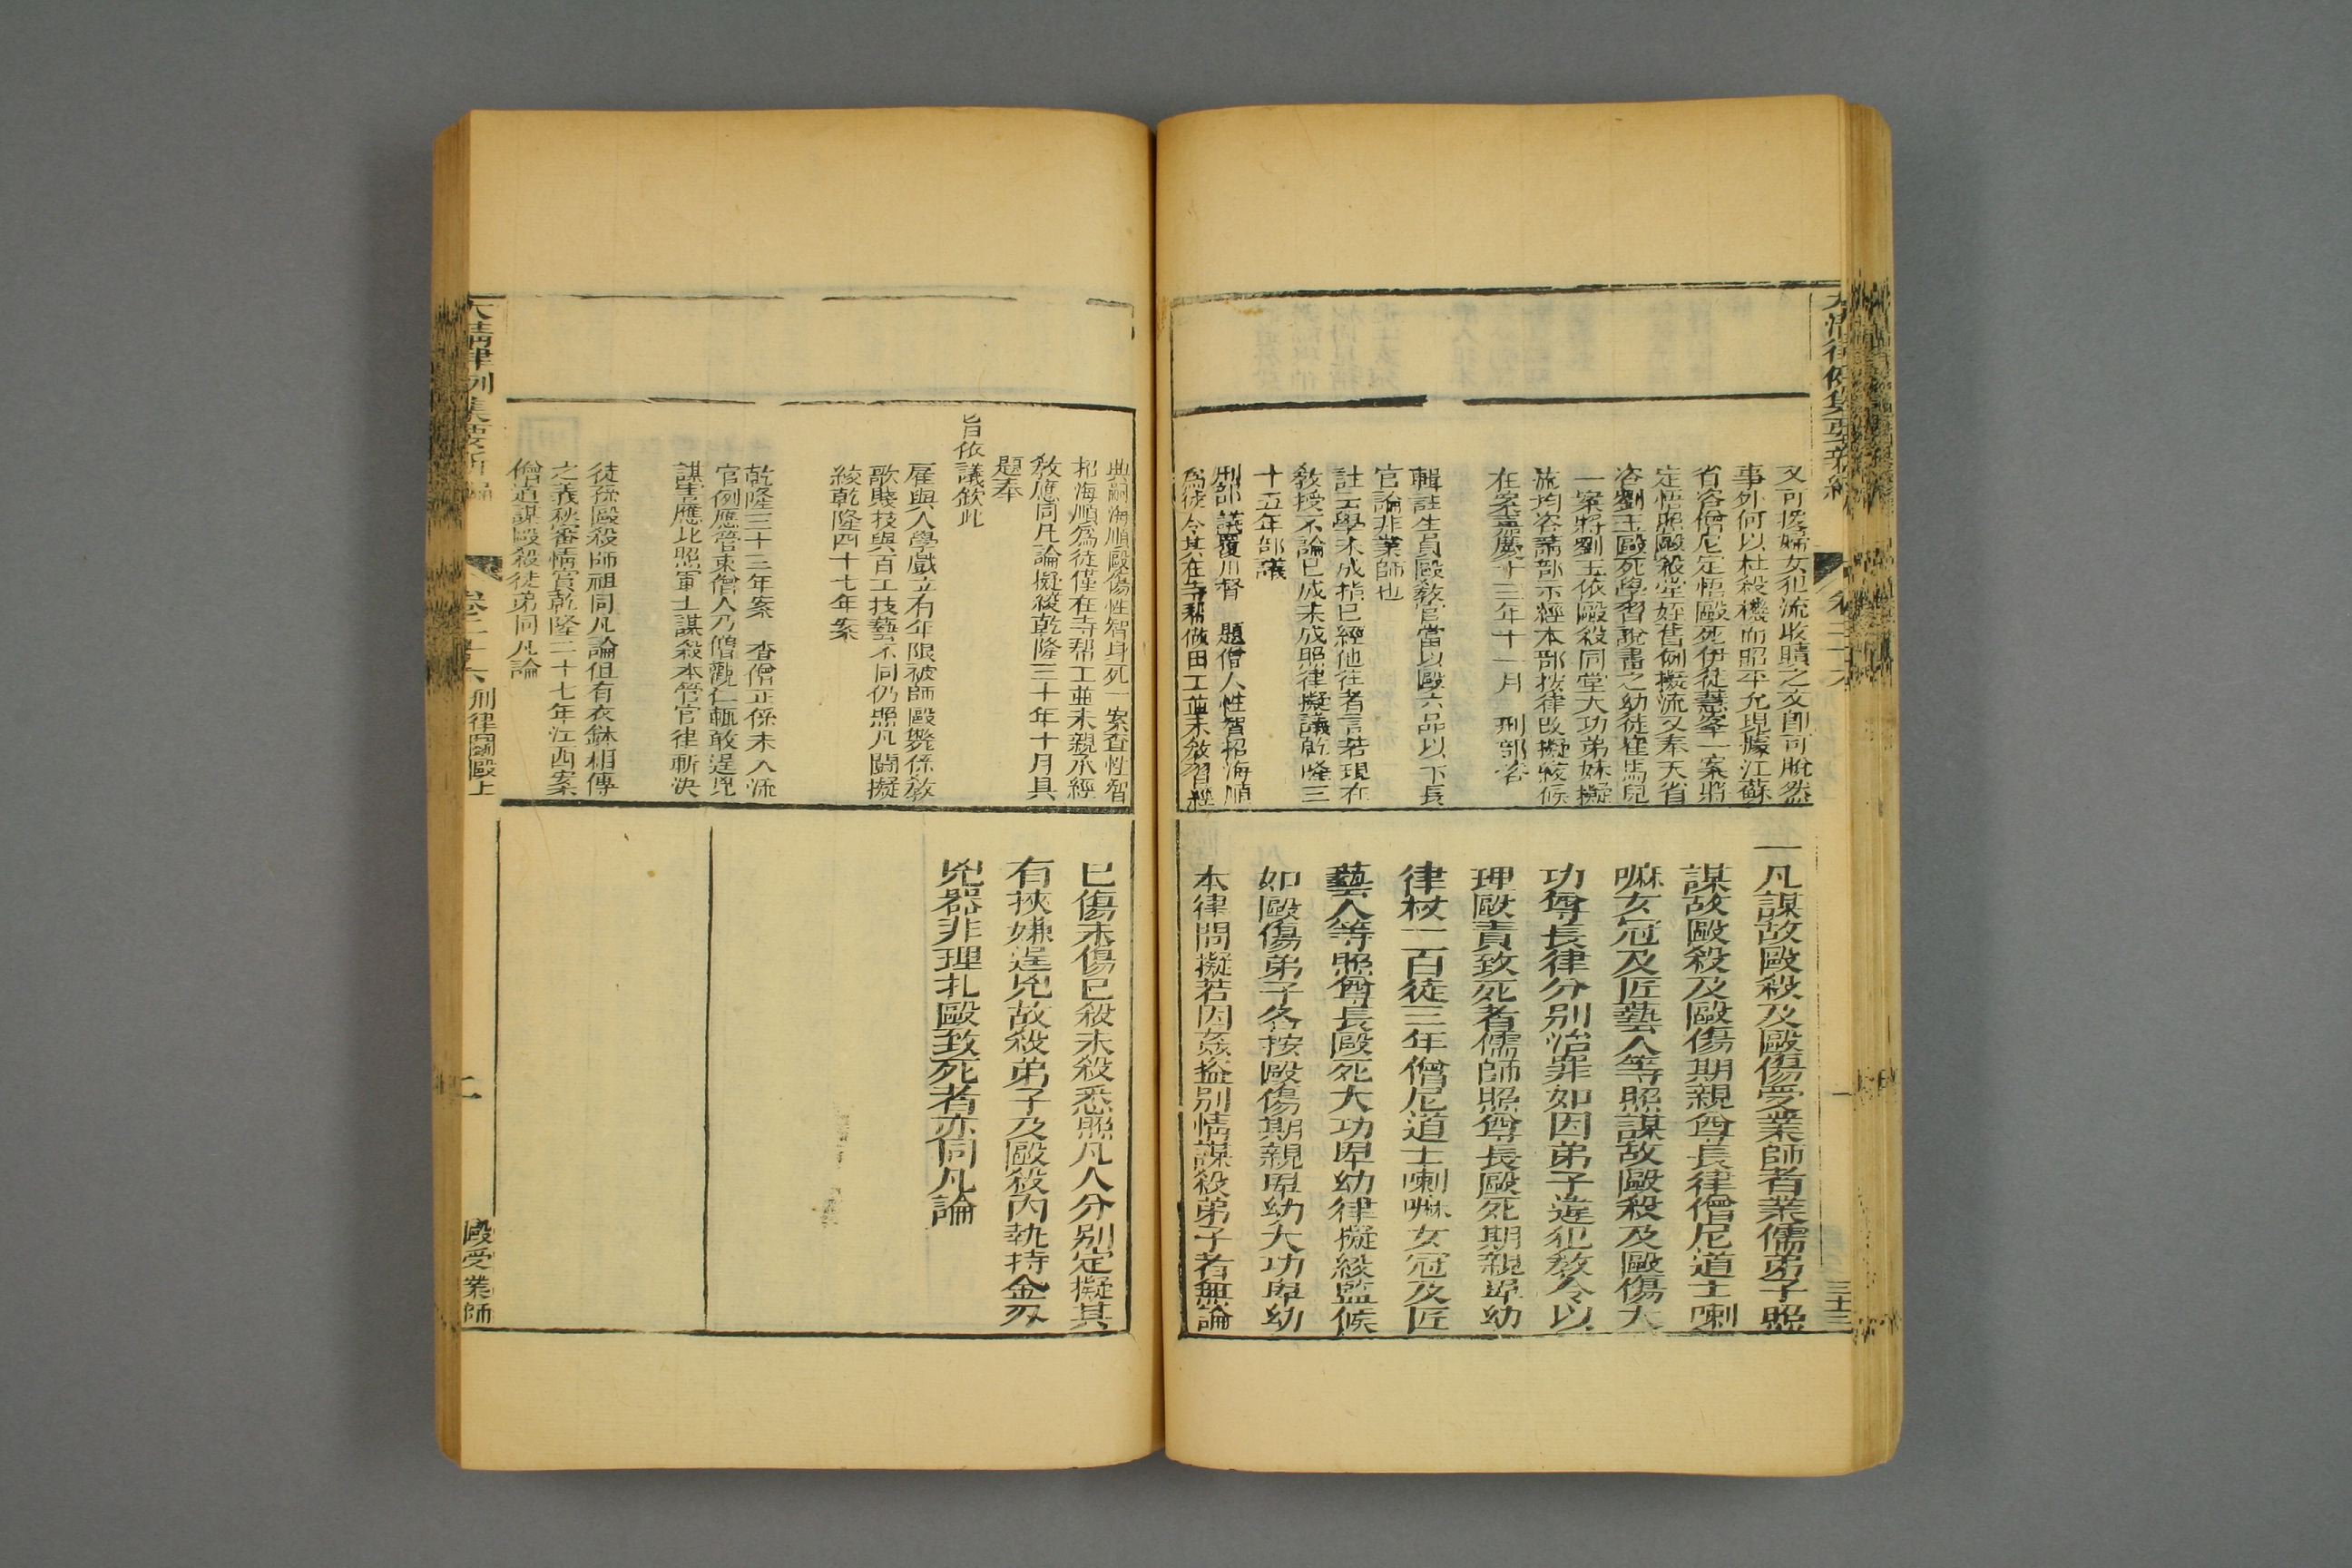 大清律例集要新編
卷二十六
三十三
又可援婦女犯流收贖之文卽可脫然
事外何以杜殺機而昭平允現據江蘇
省咨僧尼定悟毆死伊徒慧峯一案將
定悟照毆殺堂姪舊例擬流又奉天省
咨劉玉毆死學習說書之幼徒崔馬兒
一案將劉玉依毆殺同堂大功弟妹擬
流均咨請部示經本部按律改擬絞候
在案嘉慶十三年十一月 刑部咨
輯註生員毆敎官當以毆六品以下長
官論非業師也
註云學未成指已經他往者言若現在
敎授不論已成未成照律擬議乾隆三
十五年部議
刑部議覆川督 題僧人性智招海順
爲徒令其在寺幫做田工並未敎習經
一凡謀故毆殺及毆傷受業師者業儒弟子照
謀故毆殺及毆傷期親尊長律僧尼道士喇
嘛女冠及匠藝人等照謀故毆殺及毆傷大
功尊長律分別治罪如因弟子違犯敎令以
理毆責致死者儒師照尊長毆死期親卑幼
律杖一百徒三年僧尼道士喇嘛女冠及匠
藝人等照尊長毆死大功卑幼律擬絞監候
如毆傷弟子各按毆傷期親卑幼大功卑幼
本律問擬若因姦盜別情謀殺弟子者無論
典嗣海順毆傷性智身死一案查性智
招海順爲徒僅在寺幫工並未親承經
敎應同凡論擬絞乾隆三十年十月具
題奉
旨依議欽此
雇與人學戲立有年限被師毆斃係敎
歌賤技與百工技藝不同仍照凡鬭擬
絞乾隆四十七年案
乾隆三十三年案 查僧正係未入流
官例應管束僧人乃僧觀仁輒敢逞兇
謀害應比照軍士謀殺本管官律斬決
徒孫毆殺師祖同凡論但有衣鉢相傳
之義秋審情實乾隆二十七年江西案
僧道謀毆殺徒弟同凡論
已傷未傷已殺未殺悉照凡人分別定擬其
有挾嫌逞兇故殺弟子及毆殺內執持金刃
兇器非理扎毆致死者亦同凡論
大清律例集要新編
卷二十六 刑律鬭毆上
二
毆受業師